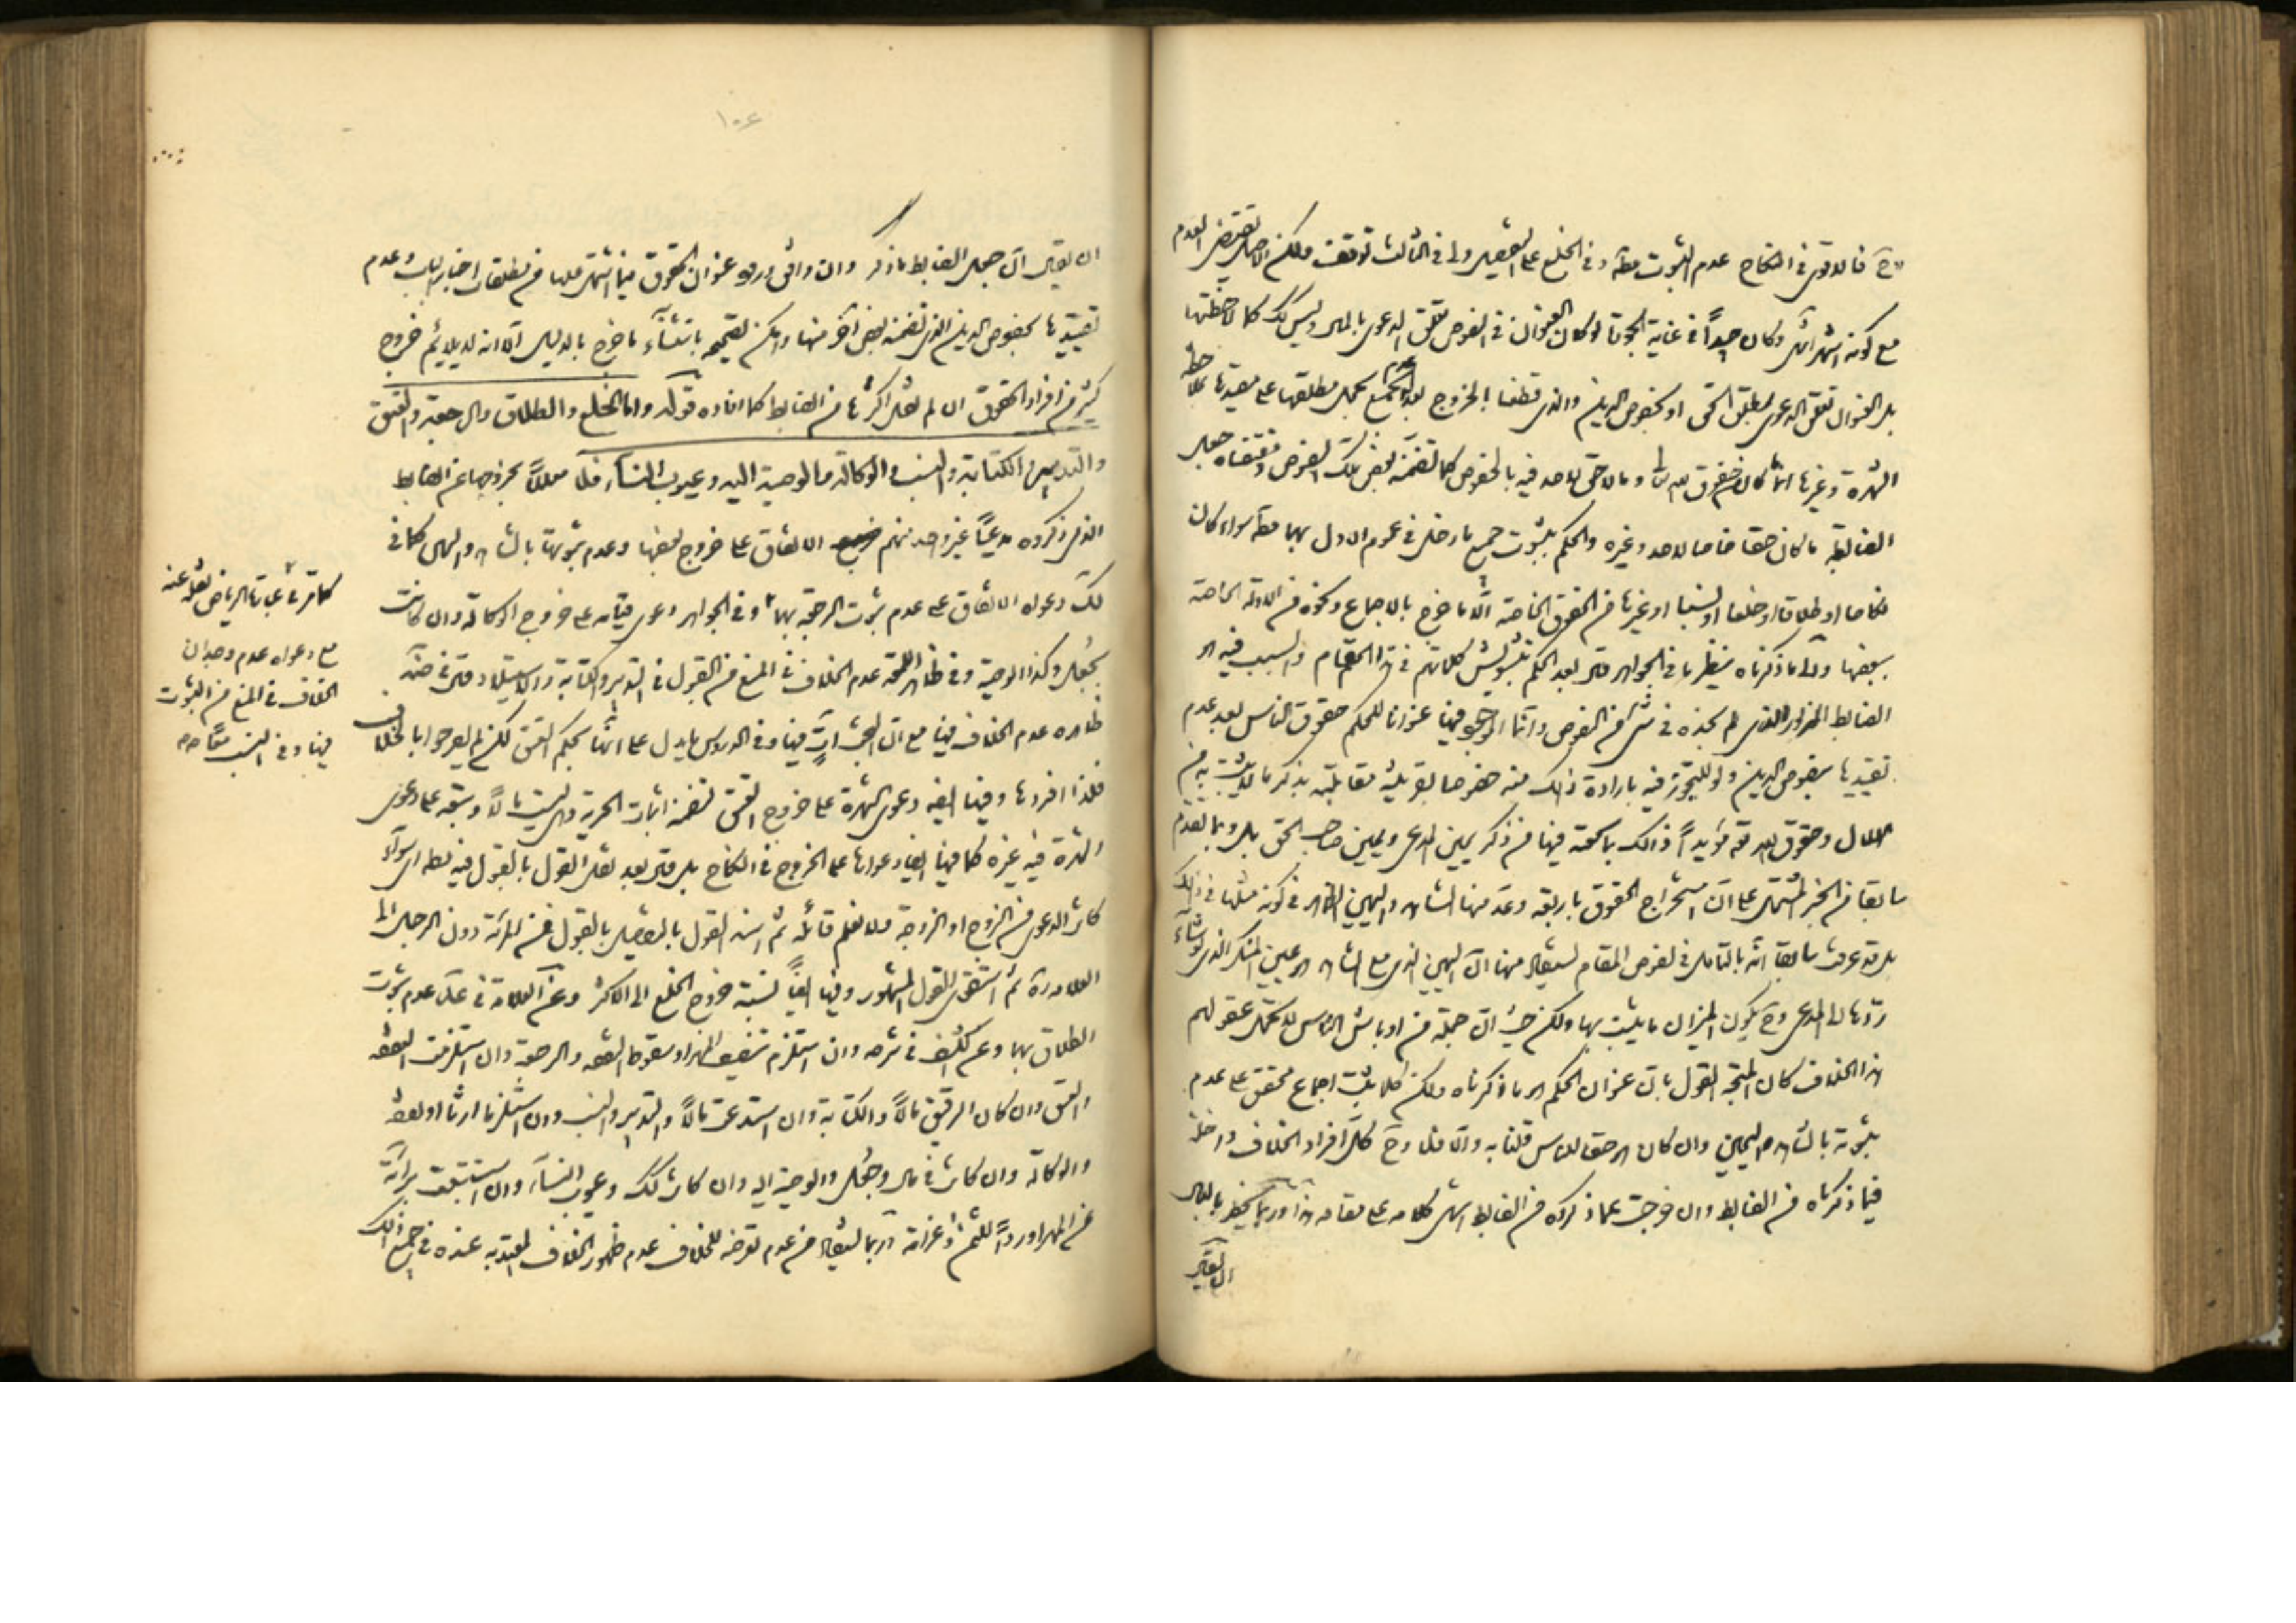 فالاقوى في النكاح عدم الثبوت مطلقا وفي الخلع على التفصيل ولى في الثالث توقف ولكن الاصل يقتضى العدم
مع كونه اشهر انتهى وكان جيدا في غاية الجودة لو كان العنوان في النصوص تعلق الدعوى بالمال وليس كك كما لاحظتها
بل العنوان تعلق الدعوى بمطلق الحق او بخصوص الدين والذى قطعنا الخروج بعد عدم الجمع بحمل مطلقها على مقيدها بملاحظة
الشهرة وغيرها انما كان حقوق لله تعالى وما لا حق لاحد فيه بالخصوص كما تضمنه بعض تلك النصوص ومقتضاه جعل
الضابطة ما كان حقا خاصا لاحد وغيره والحكم بثبوت جميع ما دخل في عموم الاول بهما مطلقا سواء كان
نكاحا او طلاقا او خلعا او نسبا او غيرها من الحقوق الخاصة الا ما خرج بالاجماع ونحوه من الادلة الخاصة
ببعضها والى ما ذكرناه ينظر ما في الجواهر قال بعد الحكم بتشويش كلماتهم في هذا المقام والسبب فيه ان
الضابط المزبور الذى لم نجده في شئ من النصوص وانما الموجود فيها عنوانا للحكم حقوق الناس بعد عدم
تقييدها بخصوص الدين او التجوز فيه بارادة ذلك منه خصوصا بقرينة مقابلته بذكر ما لا يثبت به من
الهلال وحقوق الله مؤيدا ذلك بما سمعته فيها من ذكر يمين المدعى ويمين صاحب الحق بل وبما تقدم
سابقا من الخبر المشتمل على ان استخراج الحقوق باربعة وعد منها الشاهد واليمين الظاهر في كونه مثلها في ذلك
بل قد عرفت سابقا انه بالتامل في نصوص المقام يستفاد منها ان اليمين الذى مع الشاهد هو يمين المنكر الذى لو شاء
ردها الى المدعى وح يكون الميزان ما يثبت بها ولكن حيث ان جملة من اوباش الناس لا تتحمل عقولهم
هذا الخلاف كان المتجه القول بان عنوان الحكم هو ما ذكرناه ولكن كلما يثبت اجماع محقق على عدم
ثبوته بالشاهد واليمين وان كان هو حقا للناس قلنا به والا فلا وح كل افراد الخلاف داخلة
فيما ذكرناه من الضابط وان خرجت عما ذكروه من الضابط انتهى كلامه على مقامه هذا وربما يخطر بالبال
ان يقال
١٠٤
ان يقال ان جعل الضابط ما ذكر وان وافق ورود عنوان الحقوق فيما اشتمل عليها من مطلقات اخبار الباب وعدم
تقييدها بخصوص الدين الذى تضمنه بعض آخر منها وامكن تصحيحه باستثناء ما خرج بالدليل الا انه لا يلائم خروج
كثير من افراد الحقوق ان لم نقل اكثرها من الضابط كما افاده قوله واما الخلع والطلاق والرجعة والعتق
والتدبير والكتابة والنسب والوكالة والوصية اليه وعيوب النساء فلا معللا بخروجها عن الضابط
الذى ذكروه مدعيا غير واحد منهم الاتفاق على خروج بعضها وعدم ثبوتها بالشاهد واليمين كما في
لك دعواه الاتفاق على عدم ثبوت الرجعة بهما وفي الجواهر دعوى قيامه على خروج الوكالة وان كانت
بجعل وكذا الوصية وفي ظاهر اللمعة عدم الخلاف في المنع من القبول في التدبير والكتابة والاستيلاد
ظاهره عدم الخلاف فيها مع ان البحث آت فيها وفي الدروس ما يدل على انها بحكم العتق لكن لم يصرحوا بالخلاف
فلذا افردها وفيها ايضا دعوى الشهرة على خروج العتق لتضمنه اثبات الحرية وليست مالا وسبقه على دعوى
الشهرة فيه غيره كما فيها ايضا دعواها على الخروج في النكاح بل قال بعد نقل القول بالقبول فيه مطلقا سواء
كان الدعوى من الزوج او الزوجة ولا نعلم قائله ثم اسند القول بالتفصيل بالقبول من المرئة دون الرجل الى
العلامة ثم استقوى القول المشهور وفيها ايضا نسبة خروج الخلع الى الاكثر وعن العلامة في عدم ثبوت
الطلاق بهما وعن كشف في شرحه وان استلزم تنصيف المهر او سقوط النفقة والرجعة وان استلزمت النفقة
والعتق وان كان الرقيق مالا والكتابة وان استدعت مالا والتدبير والنسب وان استلزما ارثا او نفقة
والوكالة وان كانت في مال وبجعل والوصية اليه وان كانت كك وعيوب النساء وان استتبعت برائة
عن المهر او ردا للثمن او غرامة وربما يستفاد من عدم تعرضه للخلاف عدم ظهور الخلاف المعتد به عنده في جميع ذلك
كما مر في عبارة الرياض نقله عنه
مع دعواه عدم وجدان
الخلاف في المنع من الثبوت
فيها وفي النسب